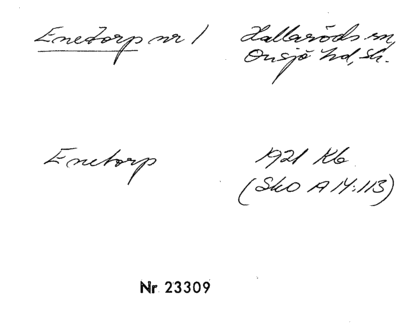 Enetorp nr 1 Hallaröds sn,
Onsjö hd, Sk.
Enetorp 1921 Kb
(SkO A 14:113)
Nr 23309